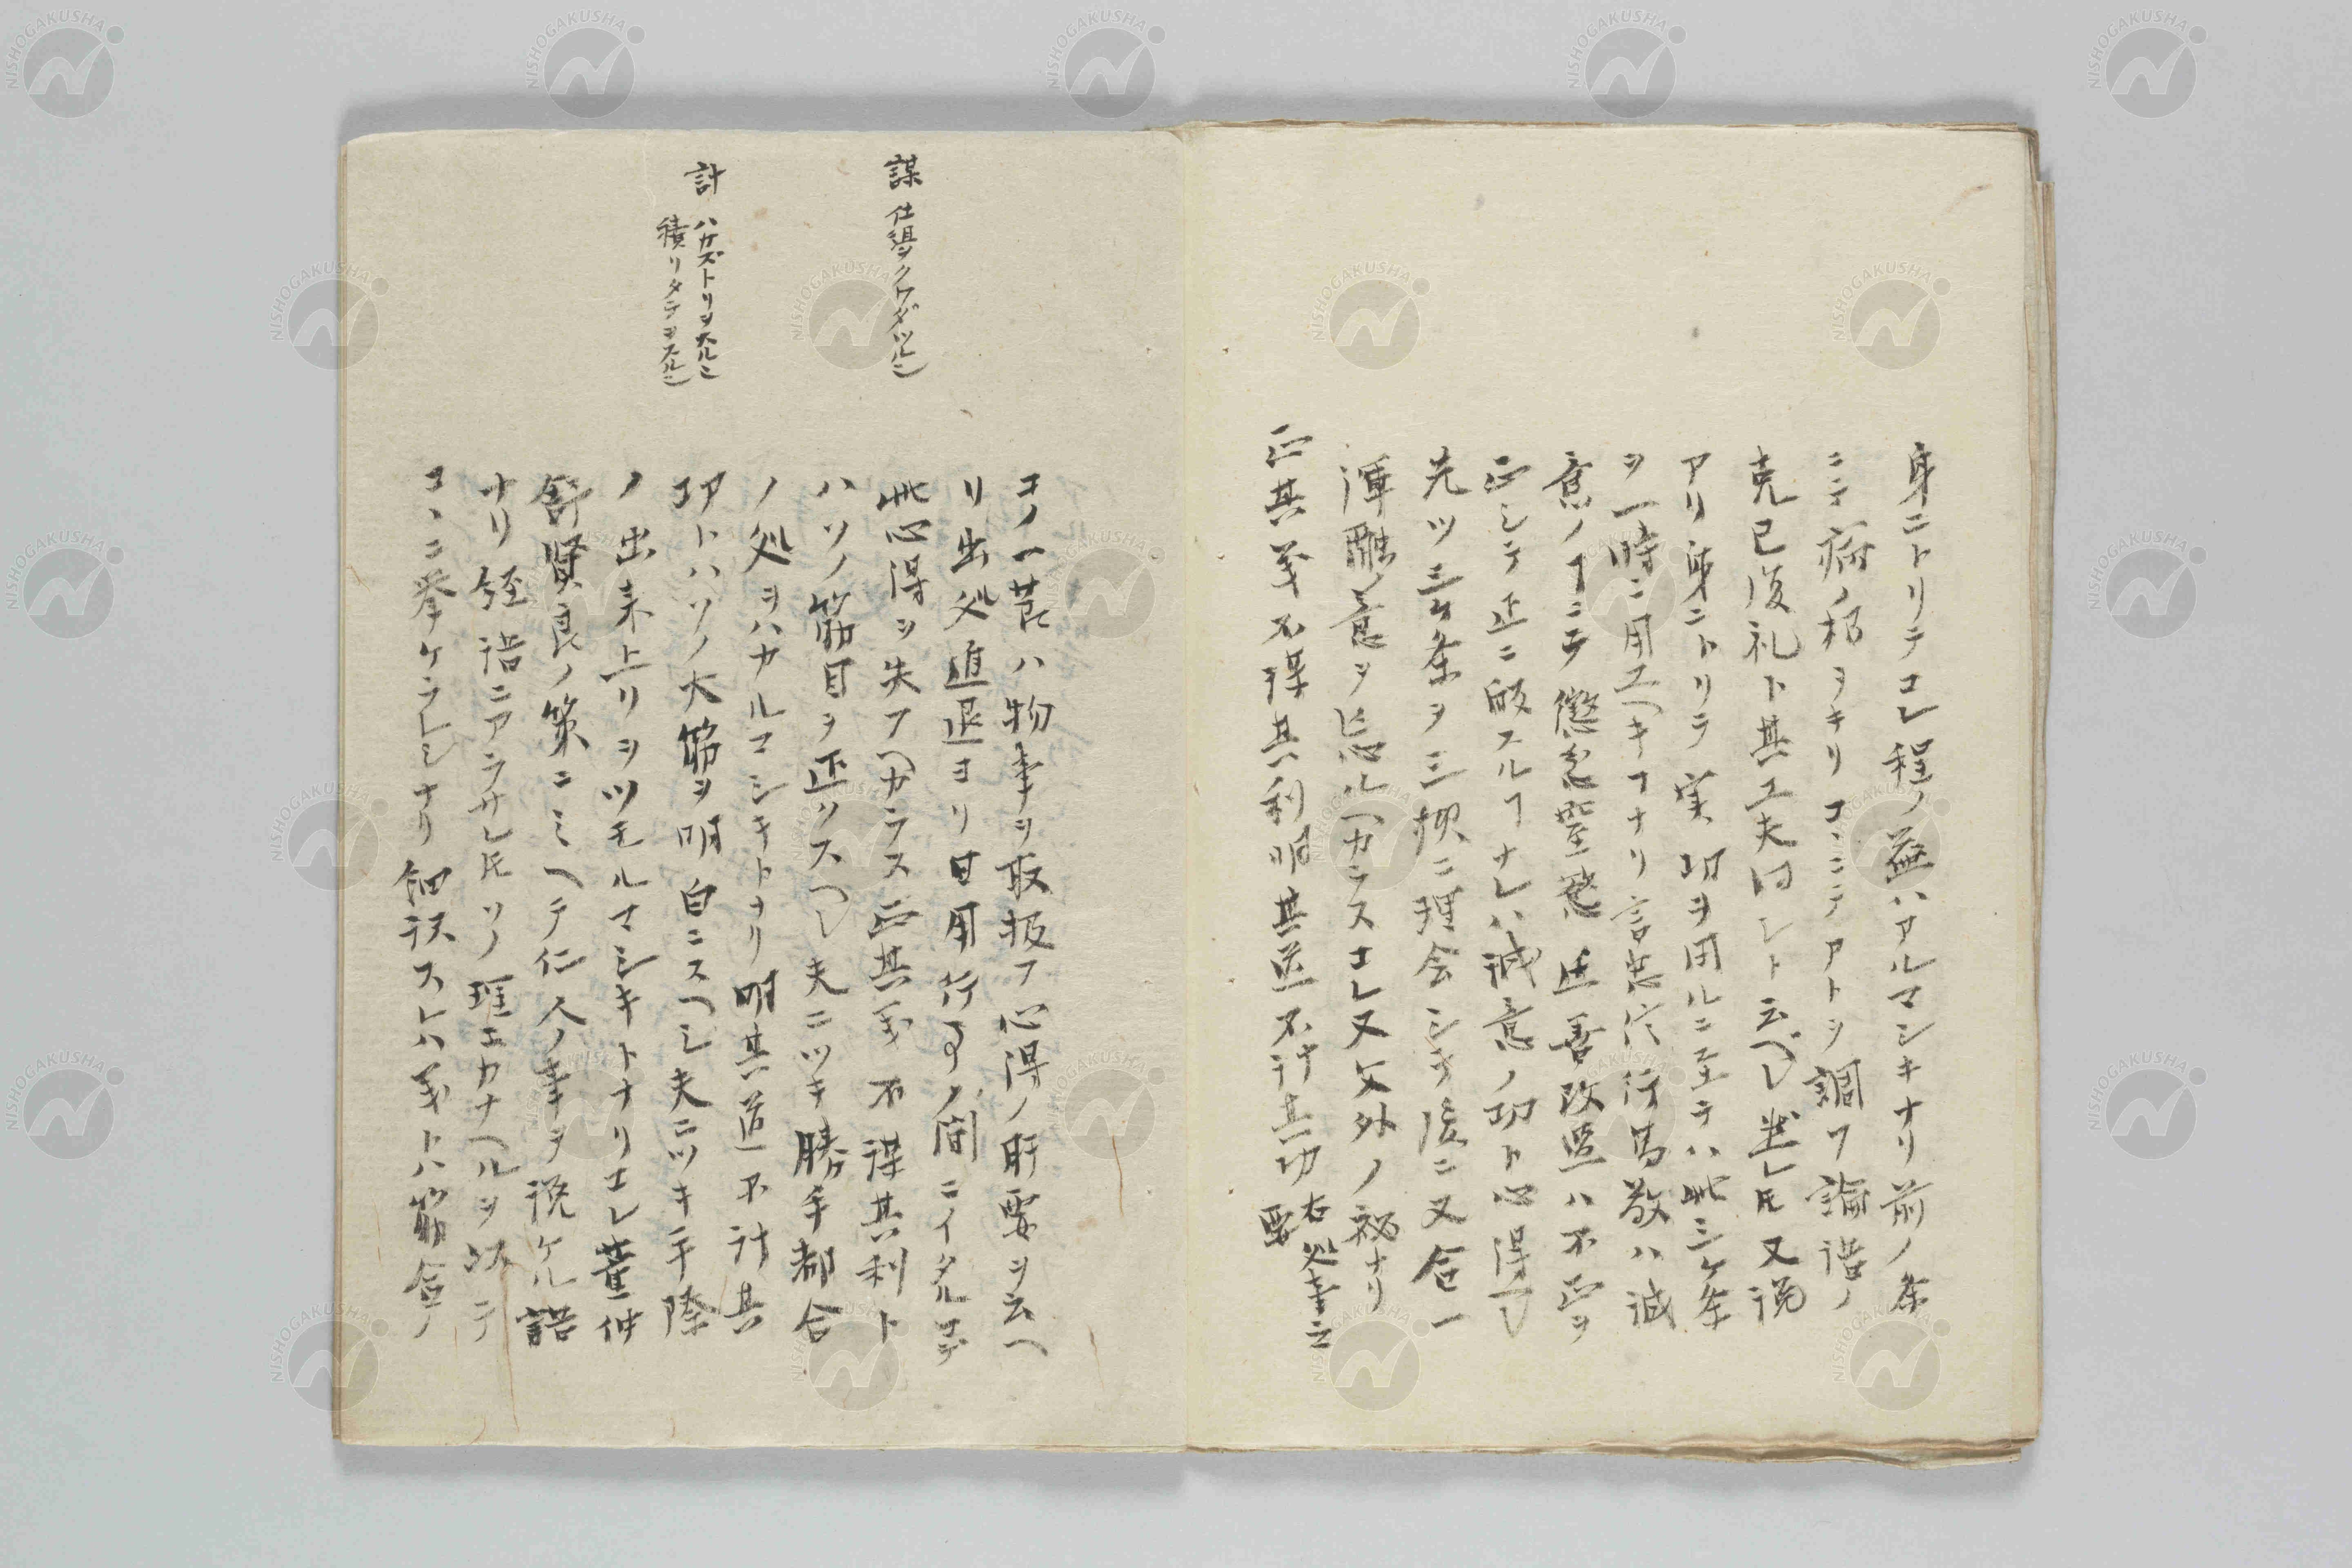 身ニトリテコレ程ノ益ハアルマシキナリ前ノ条
ニテ病ノ根ヲキリコヽニテアトヲ調フ論語ノ
克己復礼ト其工夫同シト云ヘシ然レ𪜈又説
アリ身ニトリテ実功ヲ用ルニ至テハ此三ケ条
ヲ一時ニ用工ヘキヿナリ言忠信行篤敬ハ誠
意ノヿニテ懲忿窒慾迁善改過ハ不正ヲ
正シテ正ニ皈スルヿナレハ誠意ノ功ト心得ヘシ
先ツ三ケ条ヲ三択ニ理会シキ後ニ又合一
渾融ノ意ヲ忘ルヘカラスコレ又文外ノ秘ナリ
正其義不謀其利明其道不計其功
右処事之
要
コノ一莭ハ物事ヲ取扱フ心得ノ肝要ヲ云ヘ
リ出処進退ヨリ日用行事ノ間ニイタルマテ
此心得ヲ失フヘカラス正其義不謀其利ト
ハソノ筋目ヲ正クスヘシ夫ニツキ勝手都合
ノ処ヲハカルマシキトナリ明其道不計其
功トハソノ大筋ヲ明白ニスヘシ夫ニツキ手際
ノ出来上リヲツモルマシキトナリコレ董仲
舒賢良ノ策ニミヘテ仁人ノ事ヲ説ケル語
ナリ経語ニアラサレ𪜈ソノ理ニカナヘルヲ以テ
コヽニ挙ケラレシナリ細択スレハ義トハ筋合ノ
謀 仕得ヲクワダツル也
計 ハカズトリヲスル也
積リタテヲスル也